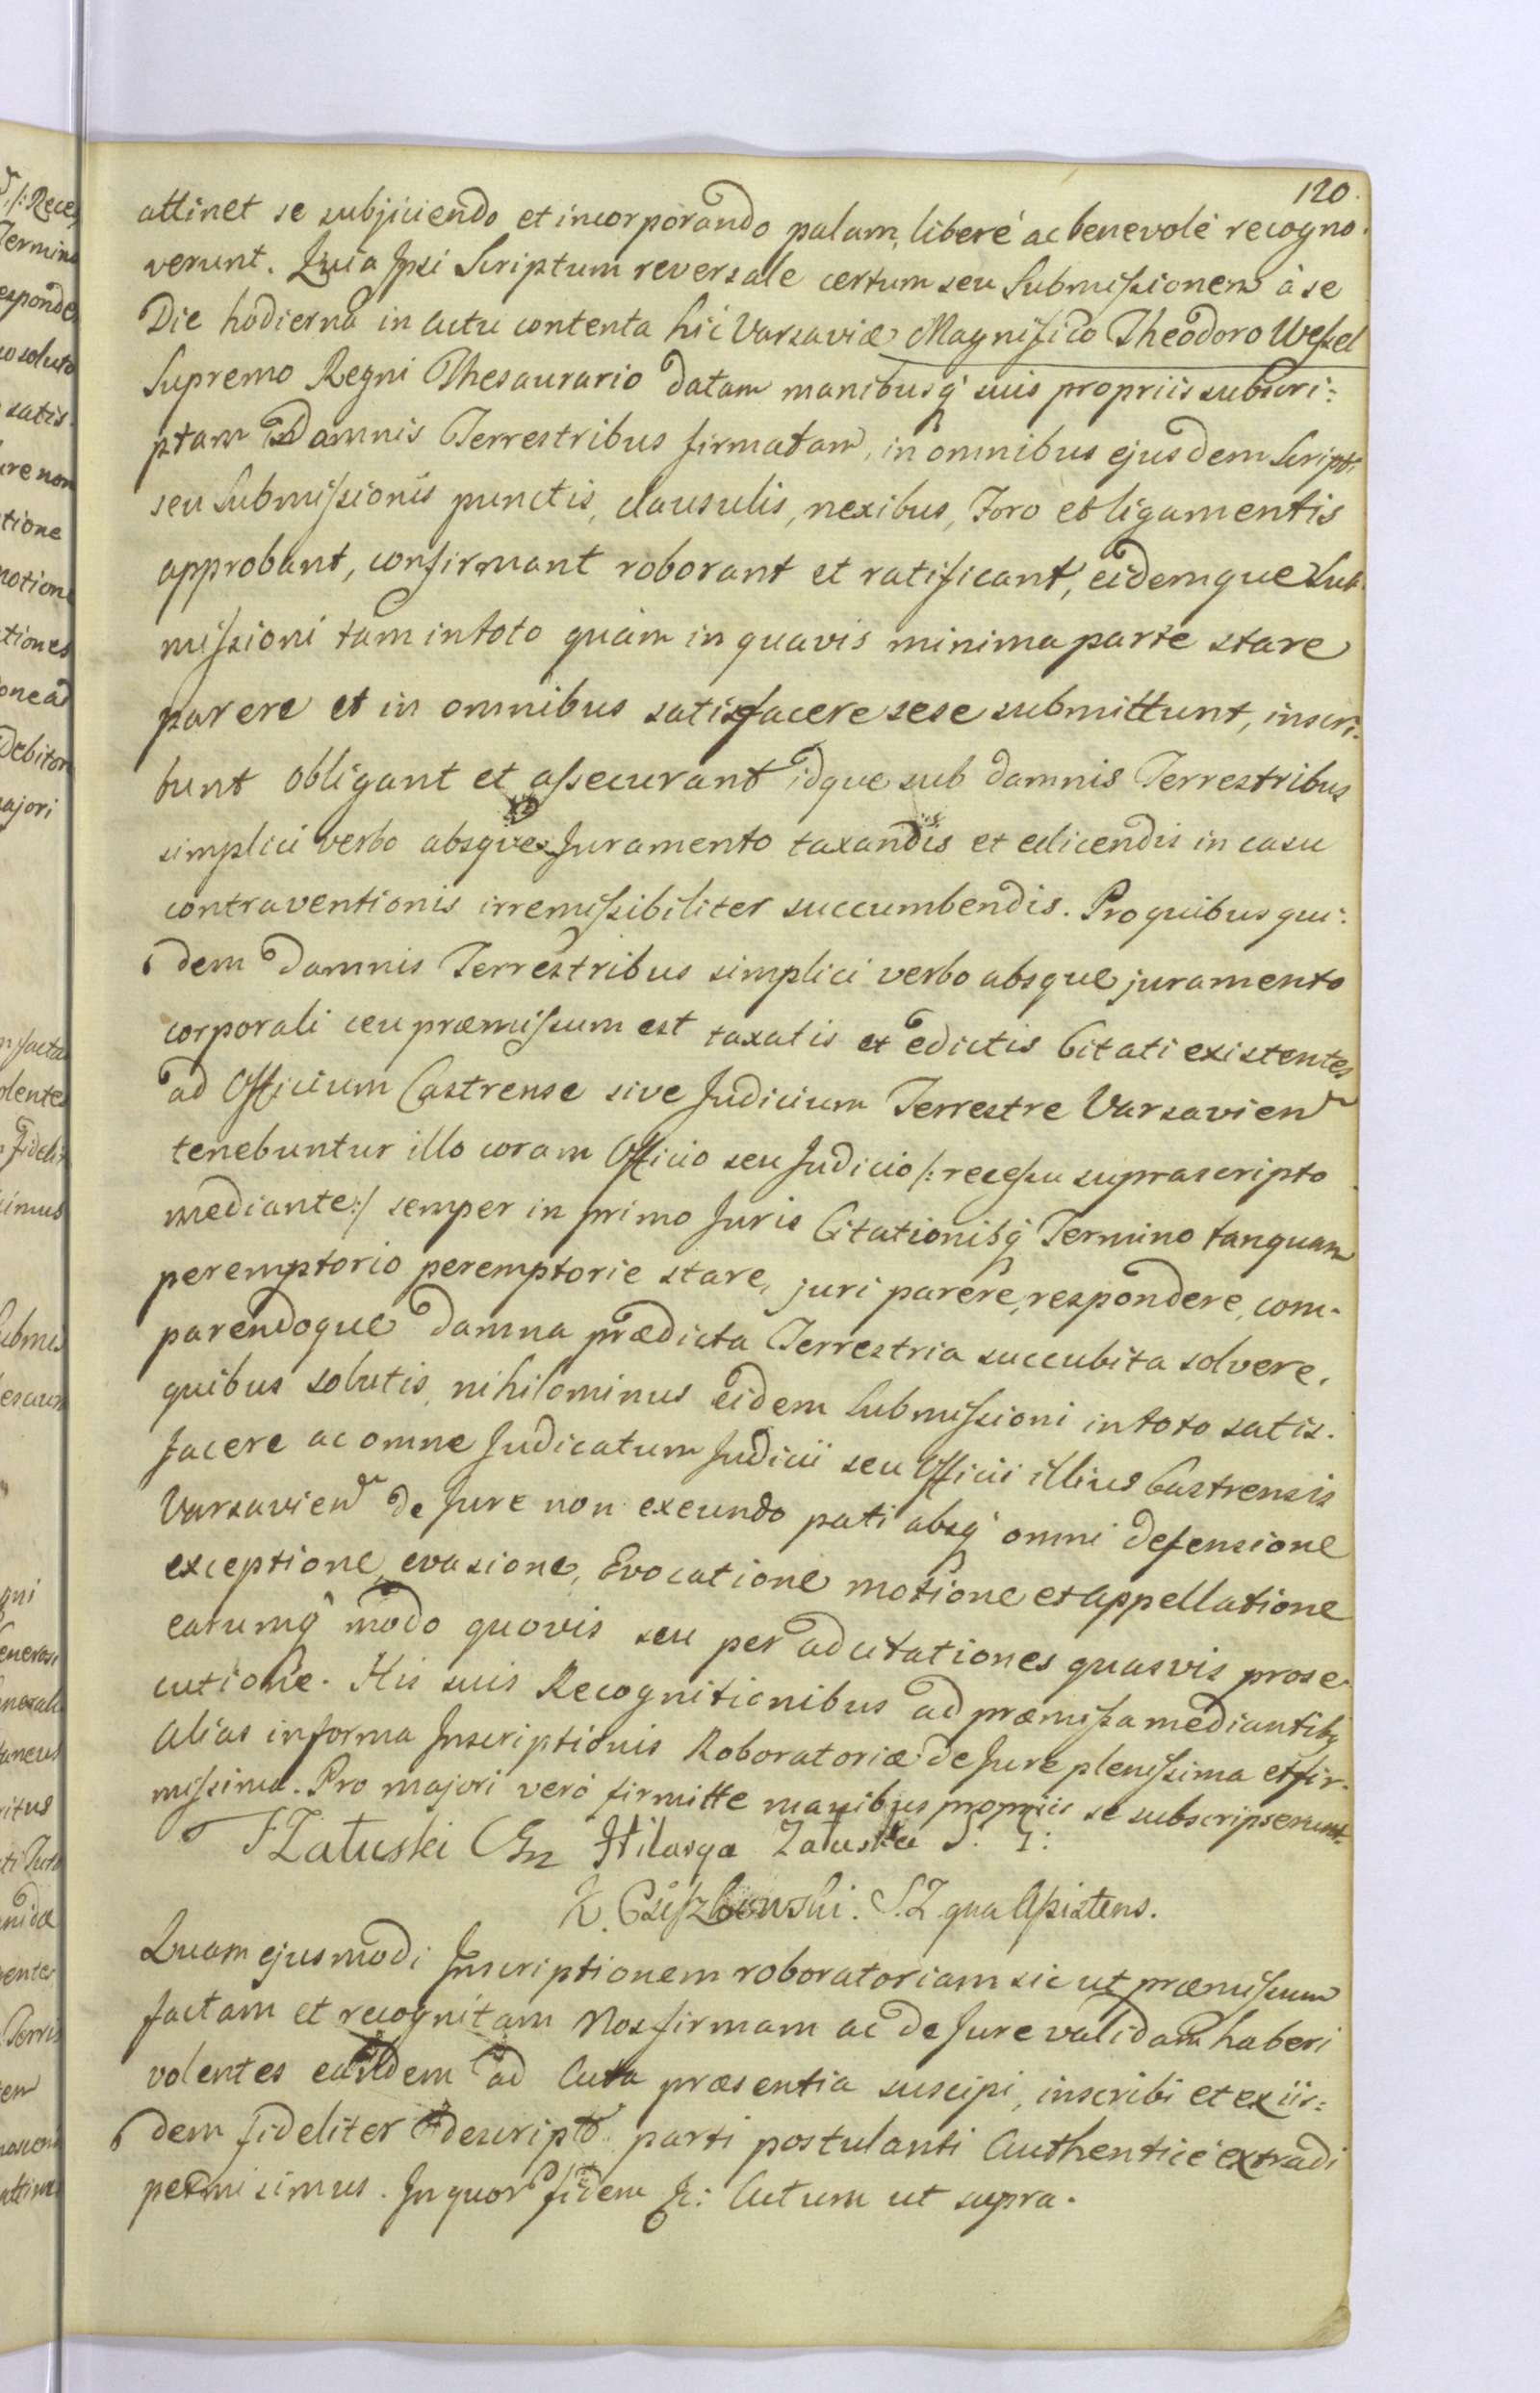 120.
attinet se subjiciendo et incorporando palam, liberé ac benevolé recogno-
verunt. Quia Ipsi Scriptum reversale certum seu Submissionem à se
Die hodierna in Actu contenta hic Varsaviæ Magnifico Theodoro Wessel
Supremo Regni Thesaurario datam manibusq suis propriis subscri:
ptam Damnis Terrestribus firmatam, in omnibus ejusdem Scripti
seu Submissionis punctis, clausulis, nexibus, Foro et ligamentis
approbant, confirmant roborant et ratificant, eidemque Sub-
missioni tam in toto quàm in quavis minima parte stare
parere et in omnibus satisfacere sese submittunt, inscri-
bunt obligant et assecurant idque sub damnis Terrestribus
simplici verbo absque Juramento taxandis et edicendis in casu
contraventionis irremissibiliter succumbendis. Pro quibus qui:
dem Damnis Terrestribus simplici verbo absque juramento
corporali ceu præmissum est taxatis et edictis Citati existentes
ad Officium Castrense sive Judicium Terrestre Varsavien
tenebuntur illo coram Officio seu Judicio /: recessu suprascripto
mediante :/ semper in primo Juris Citationisq Termino tanquam
peremptorio peremptorie stare, juri parere, respondere, com-
parendoque damna prædicta Terrestria succubita solvere,
quibus solutis, nihilominus eidem Submissioni in toto satis-
facere ac omne Judicatum Judicii seu Officii illius Castrensis
Varsavien de Jure non exeundo pati absq omni defensione
exceptione, evasione, Evocatione motione et appellatione
earumq modo quovis seu per adcitationes quasvis prose-
cutione. His suis Recognitionibus ad præmissa mediantibq
Alias in forma Inscriptionis Roboratoriæ de Jure plenissima et fir-
missima. Pro majori veró firmitte manibus propriis se subscripserunt.
Załuski Hilarya Załuska
K. Ciszkowski. S.Z. qua Assistens.
Quam ejusmodi Inscriptionem roboratoriam sic ut præmissum
factam et recognitam Nos firmam ac de Jure validam haberi
volentes eandem ad Acta præsentia suscipi, inscribi et ex iis:
dem fideliter descripto parti postulanti Authenticé extradi
permisimus. In quor fidem &: Actum ut supra.